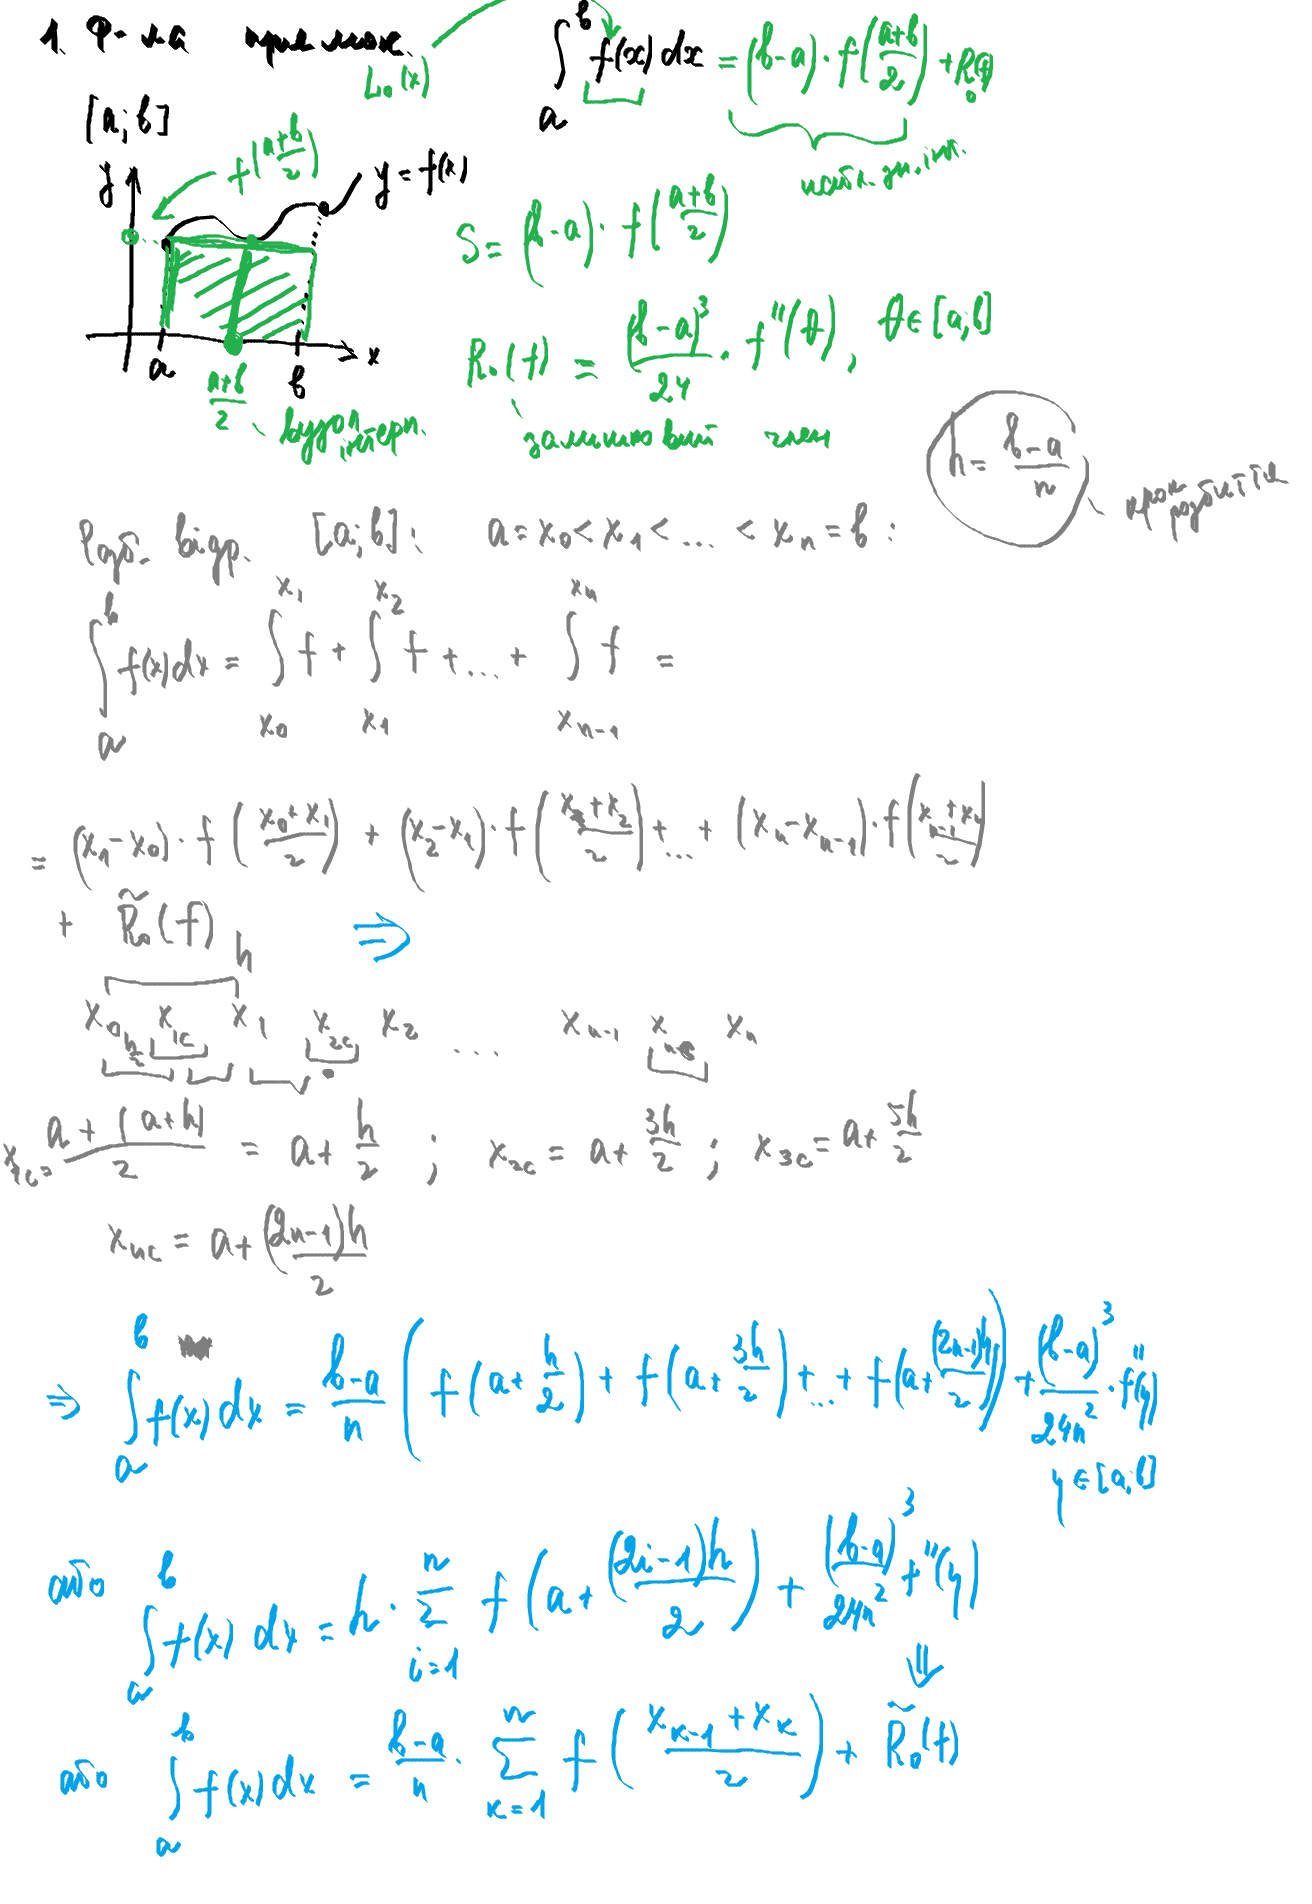 1. Ф-ла прямок.
L₀(x)
∫ₐᵇ f(x) dx = (b-a)·f((a+b)/2) + R₀(f)
набл. зн. інт.
[a; b]
f((a+b)/2)
y
y = f(x)
a b x
(a+b)/2 - вузол інтерп.
S = (b-a)·f((a+b)/2)
R₀(f) = (b-a)³/24 · f''(θ), θ ∈ [a, b]
залишковий член
h = (b-a)/n - крок розбиття
Розб. відр. [a; b]: a = x₀ < x₁ < ... < xₙ = b :
∫ₐᵇ f(x)dx = ∫_{x₀}^{x₁} f + ∫_{x₁}^{x₂} f + ... + ∫_{xₙ₋₁}^{xₙ} f =
= (x₁-x₀)·f((x₀+x₁)/2) + (x₂-x₁)·f((x₁+x₂)/2) + ... + (xₙ-xₙ₋₁)·f((xₙ₋₁+xₙ)/2)
+ R̃₀(f) ⇒
h
x₀ x₁c x₁ x₂c x₂ ... xₙ₋₁ xₙc xₙ
h/2
x₁c = (a+(a+h))/2 = a + h/2 ; x₂c = a + 3h/2 ; x₃c = a + 5h/2
xₙc = a + (2n-1)h/2
⇒ ∫ₐᵇ f(x) dx = (b-a)/n (f(a + h/2) + f(a + 3h/2) + ... + f(a + (2n-1)h/2)) + (b-a)³/24n² · f''(η)
η ∈ [a, b]
або ∫ₐᵇ f(x) dx = h · Σ_{i=1}^{n} f(a + (2i-1)h/2) + (b-a)³/24n² f''(η)
⇓
або ∫ₐᵇ f(x)dx = (b-a)/n · Σ_{k=1}^{n} f((x_{k-1} + x_k)/2) + R̃₀(f)